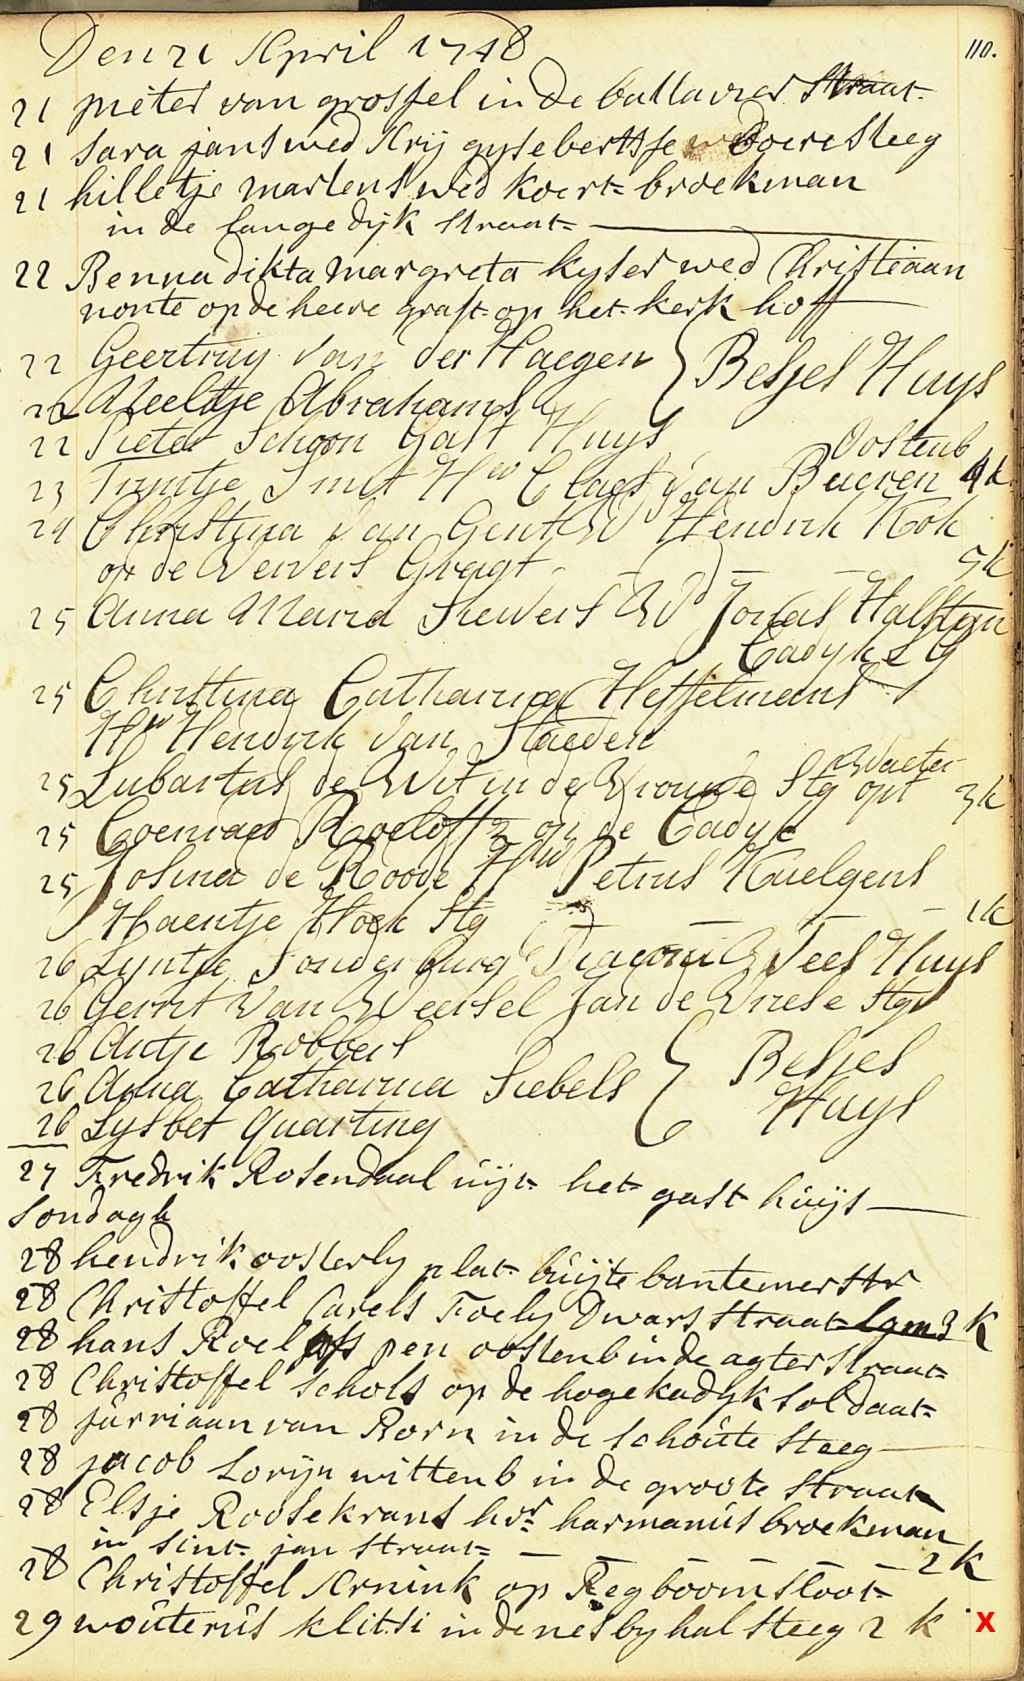 Den 21 April 1748
110.
21 pieter van grossel in de battavier straat
21 sara jans wed Arij gysebertse Boere steeg
21 hilletje martens wed koert broekman
in de lange dijk straat
22 Benna dikta margreta kyser wed Christiaan
nonte op de heere graft op het kerk hoff
22 Geertruy Van der Haegen } Besjes Huys
22 Neeltje Abrahams
22 Pieter Schoon Gast Huys
Oostenb
23 Tryntje Smit Hw Claes Van Bueren 4k
24 Christina Van Gent Wd Hendrik Kok
op de Ververs Gragt 5k
25 Anna Maria Siewers Wd Jonas Halsteyn
Cadyk Stg
25 Christina Catharina Hesselmans
Hw Hendrik Van Staeden
25 Lubartus de Wit in de Vrouwe Stg opt Waeter 3k
25 Coenraed Roeloffz op de Cadyk
25 Josina de Roode Hw Petrus Kuelgens
Haentje Hoek Stg 1k
26 Lyntje Sonderburg Diaconi Wees Huys
26 Gerrit Van Weersel Jan de Vriese Stg
26 Antje Robbers } Besjes
26 Anna Catharina Siebels Huys
26 Lysbet Quarting
27 Fredrik Rosendaal uijt het gast huijs
Sondagh
28 hendrik oosterly plat buijte bantemer str
28 Christoffel Carels Foely Dwars straat 3 K
28 hans Roelofs pen oostenb in de agter straat
28 Christoffel schols op de hoge kadyk soldaat
28 jurriaan van Rorn in de schoute steeg
28 jacob Lorijn wittenb in de groote straat
28 Elsje Roosekrans hvr harmanus broekman
in sint jan straat 2 K
28 Christoffel Arnink op Regboom sloot
29 wouterus klitsi in de nes by hal steeg 2 k X